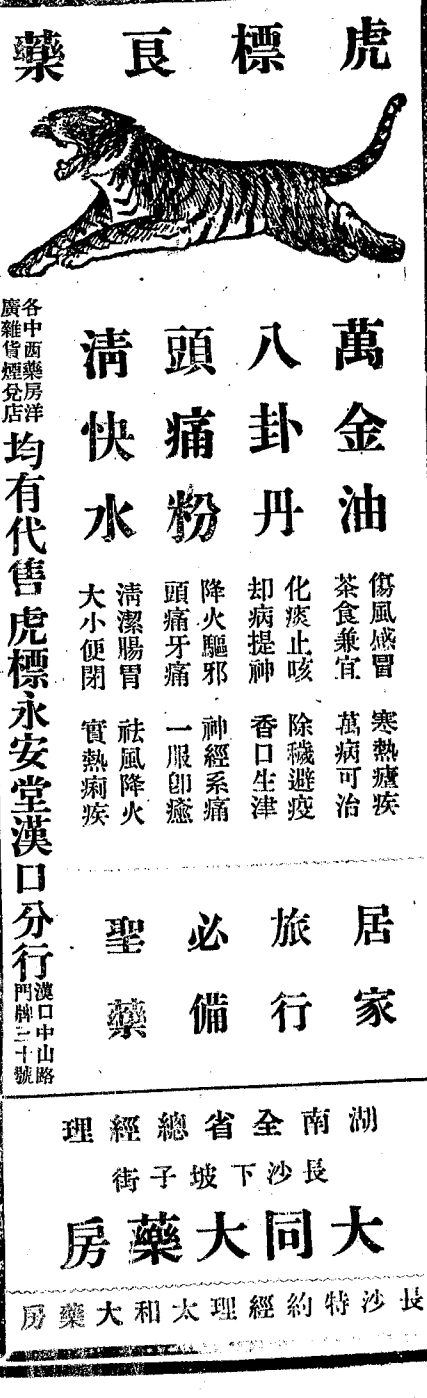 虎標良藥
萬金油
傷風感冒 寒熱瘧疾
茶食兼宜 萬病可治
八卦丹
化痰止咳 除穢避疫
却病提神 香口生津
頭痛粉
降火驅邪 神經系痛
頭痛牙痛 一服卽癒
清快水
清潔腸胃 祛風降火
大小便閉 實熱痢疾
居家
旅行
必備
聖藥
各中西藥房洋
廣雜貨煙兌店
均有代售 虎標永安堂漢口分行
漢口中山路
門牌三十號
湖南全省總經理
長沙下坡子街
大同大藥房
長沙特約經理太和大藥房